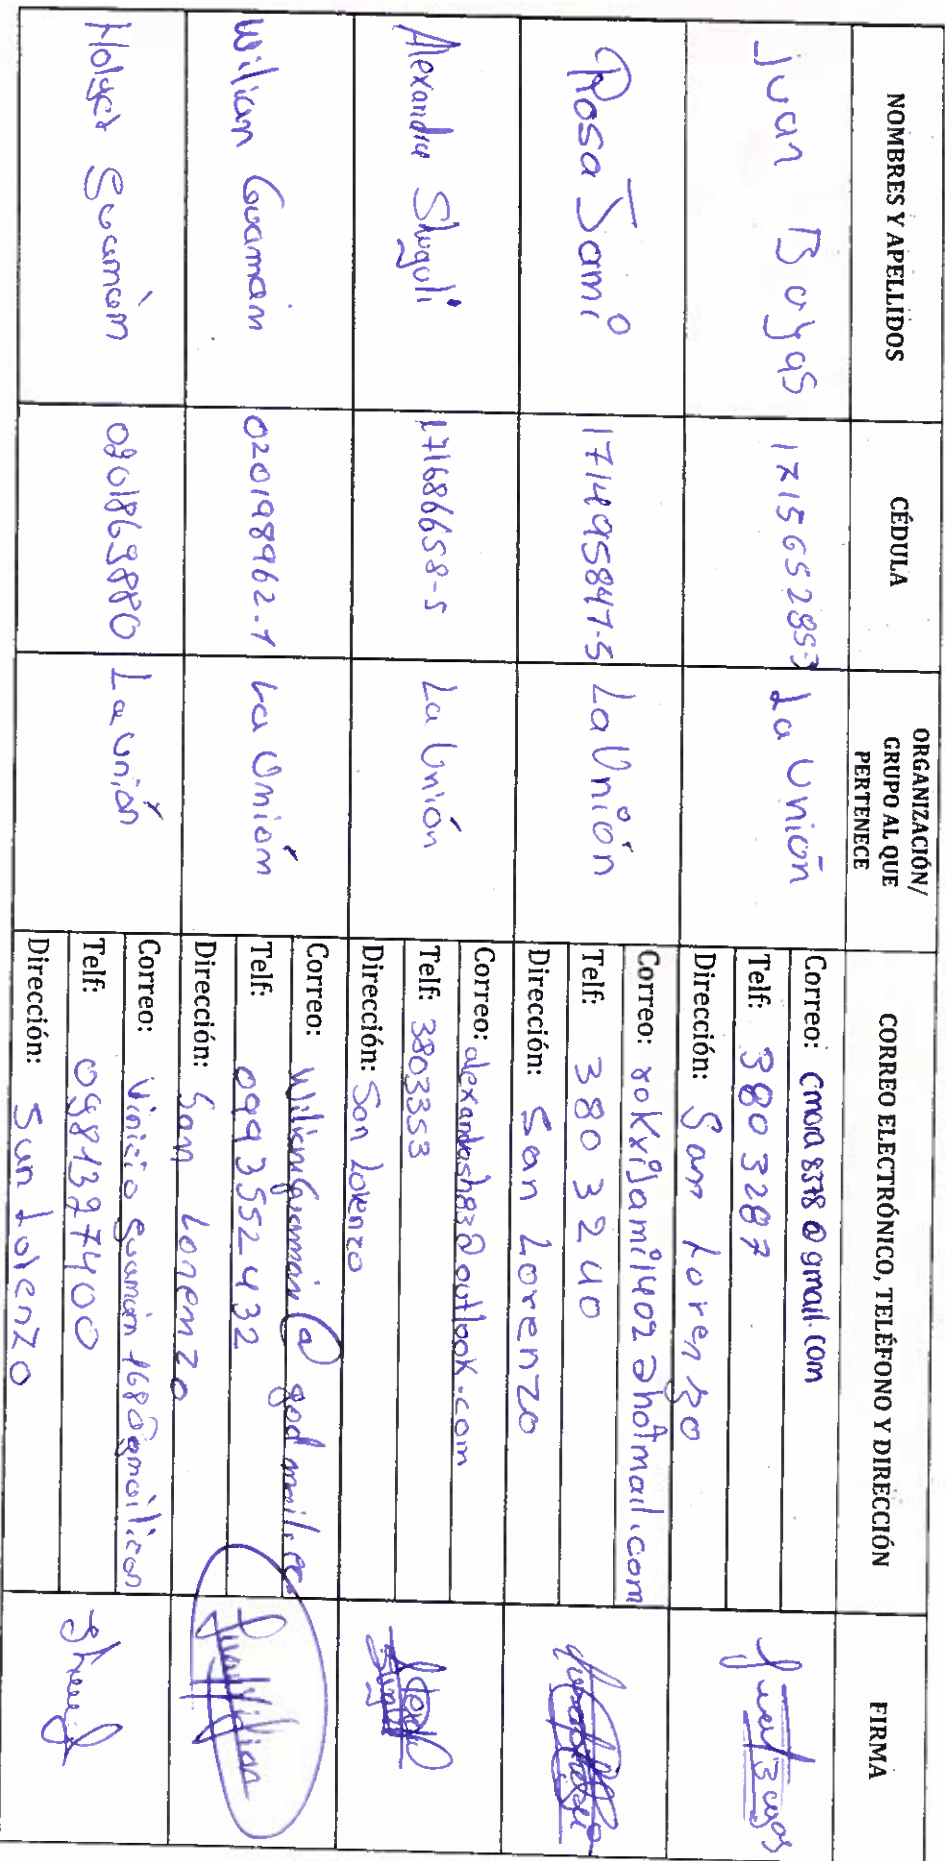 NOMBRES Y APELLIDOS
CÉDULA
ORGANIZACIÓN/
GRUPO AL QUE
PERTENECE
CORREO ELECTRÓNICO, TELÉFONO Y DIRECCIÓN
FIRMA
Juan Bayas
171565285-3
La Unión
Correo: cmora8378@gmail.com
Telf: 3803287
Dirección: San Lorenzo
Juan Bayas
Rosa Jami
171495847-5
La Unión
Correo: rokxijami1402@hotmail.com
Telf: 3803240
Dirección: San Lorenzo
Alexandra Shuguli
171686658-5
La Unión
Correo: alexandrash83@outlook.com
Telf: 3803353
Dirección: San Lorenzo
Wilian Guamán
020198962-1
La Unión
Correo:
Telf: 0993552432
Dirección: San Lorenzo
Wilian
Holger Guamán
0201869880
La Unión
Correo: Vinicio guaman
Telf: 0981397400
Dirección: San Lorenzo